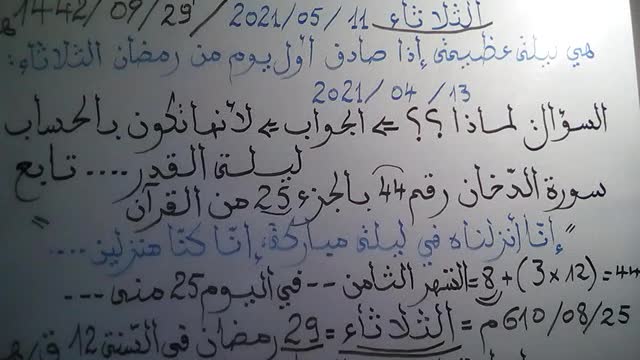 الثلاثاء 2021/05/11 / 1442/09/29 هـ
هي ليلة عظيمة إذا صادق أول يوم من رمضان الثلاثاء:
2021/04/13
السؤال لماذا؟؟ => الجواب => لأنها تكون بالحساب
ليلة القدر .... تابع
سورة الدّخان رقم 44 بالجزء 25 من القرآن
"إنّا أنزلناه في ليلة مباركة، إنّا كنّا منزلين ....."
44 = (12 × 3) + 8 = الشهر الثامن -- في اليوم 25 منه ---
610/08/25 م = الثلاثاء = 29 رمضان في السّنة 12 ق/هـ